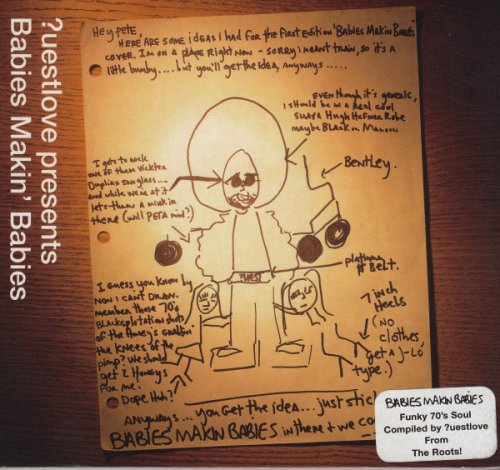 ?uestlove presents
Babies Makin' Babies
Hey Pete,
HERE ARE SOME ideas i had for the First Edition 'Babies Makin Babies'
cover. I'm on a plane Right Now - sorry i meant train, so it's a
little bumby.... but you'll get the idea, anyways .....
Even though it's generic,
i should be in a Real cool
Suava Hugh Hefner Robe
maybe Black or Maroon
BENTLEY.
I gots to rock
one of them
sunglass...
and while we're at it
lets throw a mink in
there (will PETA mind?)
platinum
# BELT.
?UEST
I guess you know by
NOW i can't DRAW.
member those 70's
Blacksploitation shots
of the Honey's
the knees of the
pimp? We should
get 2 Honeys
for me.
Dope Huh?
7 inch
Heels
(NO
clothes,
get a J-LO
type.)
ANYWAYS... you Get the idea... just stic
BABIES MAKIN BABIES in there & we co
BABIES MAKIN BABIES
Funky 70's Soul
Compiled by ?uestlove
From
The Roots!